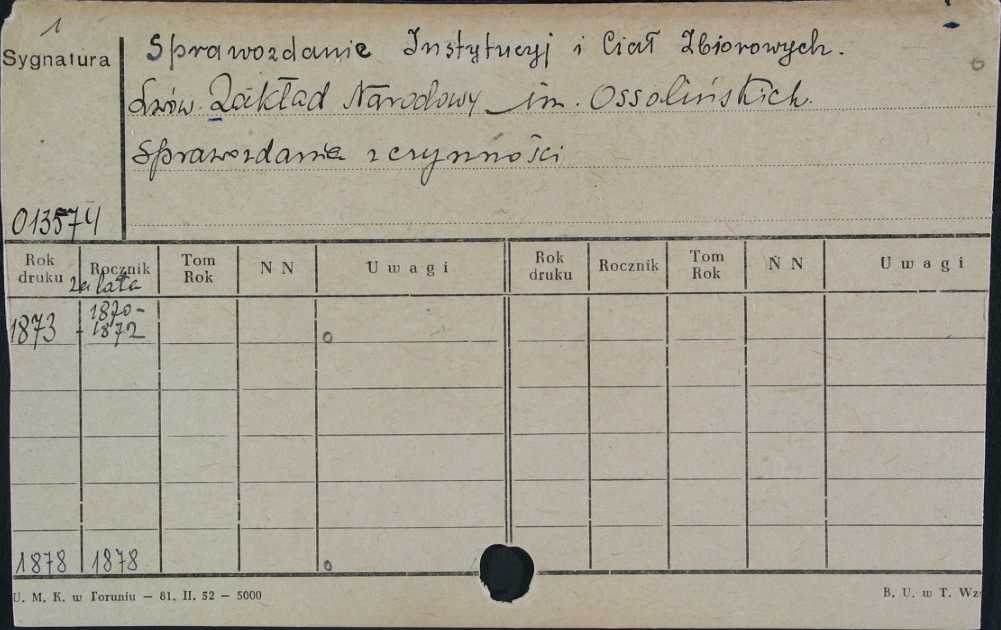 1
Sygnatura
Sprawozdanie Instytucyj i Ciał Zbiorowych.
Lwów. Zakład Narodowy im. Ossolińskich.
Sprawozdania z czynności
013574
Rok druku Rocznik Tom Rok N N Uwagi Rok druku Rocznik Tom Rok N N Uwagi
za lata
1873 1870-1872
1878 1878
U. M. K. w Toruniu — 81. II. 52 — 5000 B. U. w T. Wz